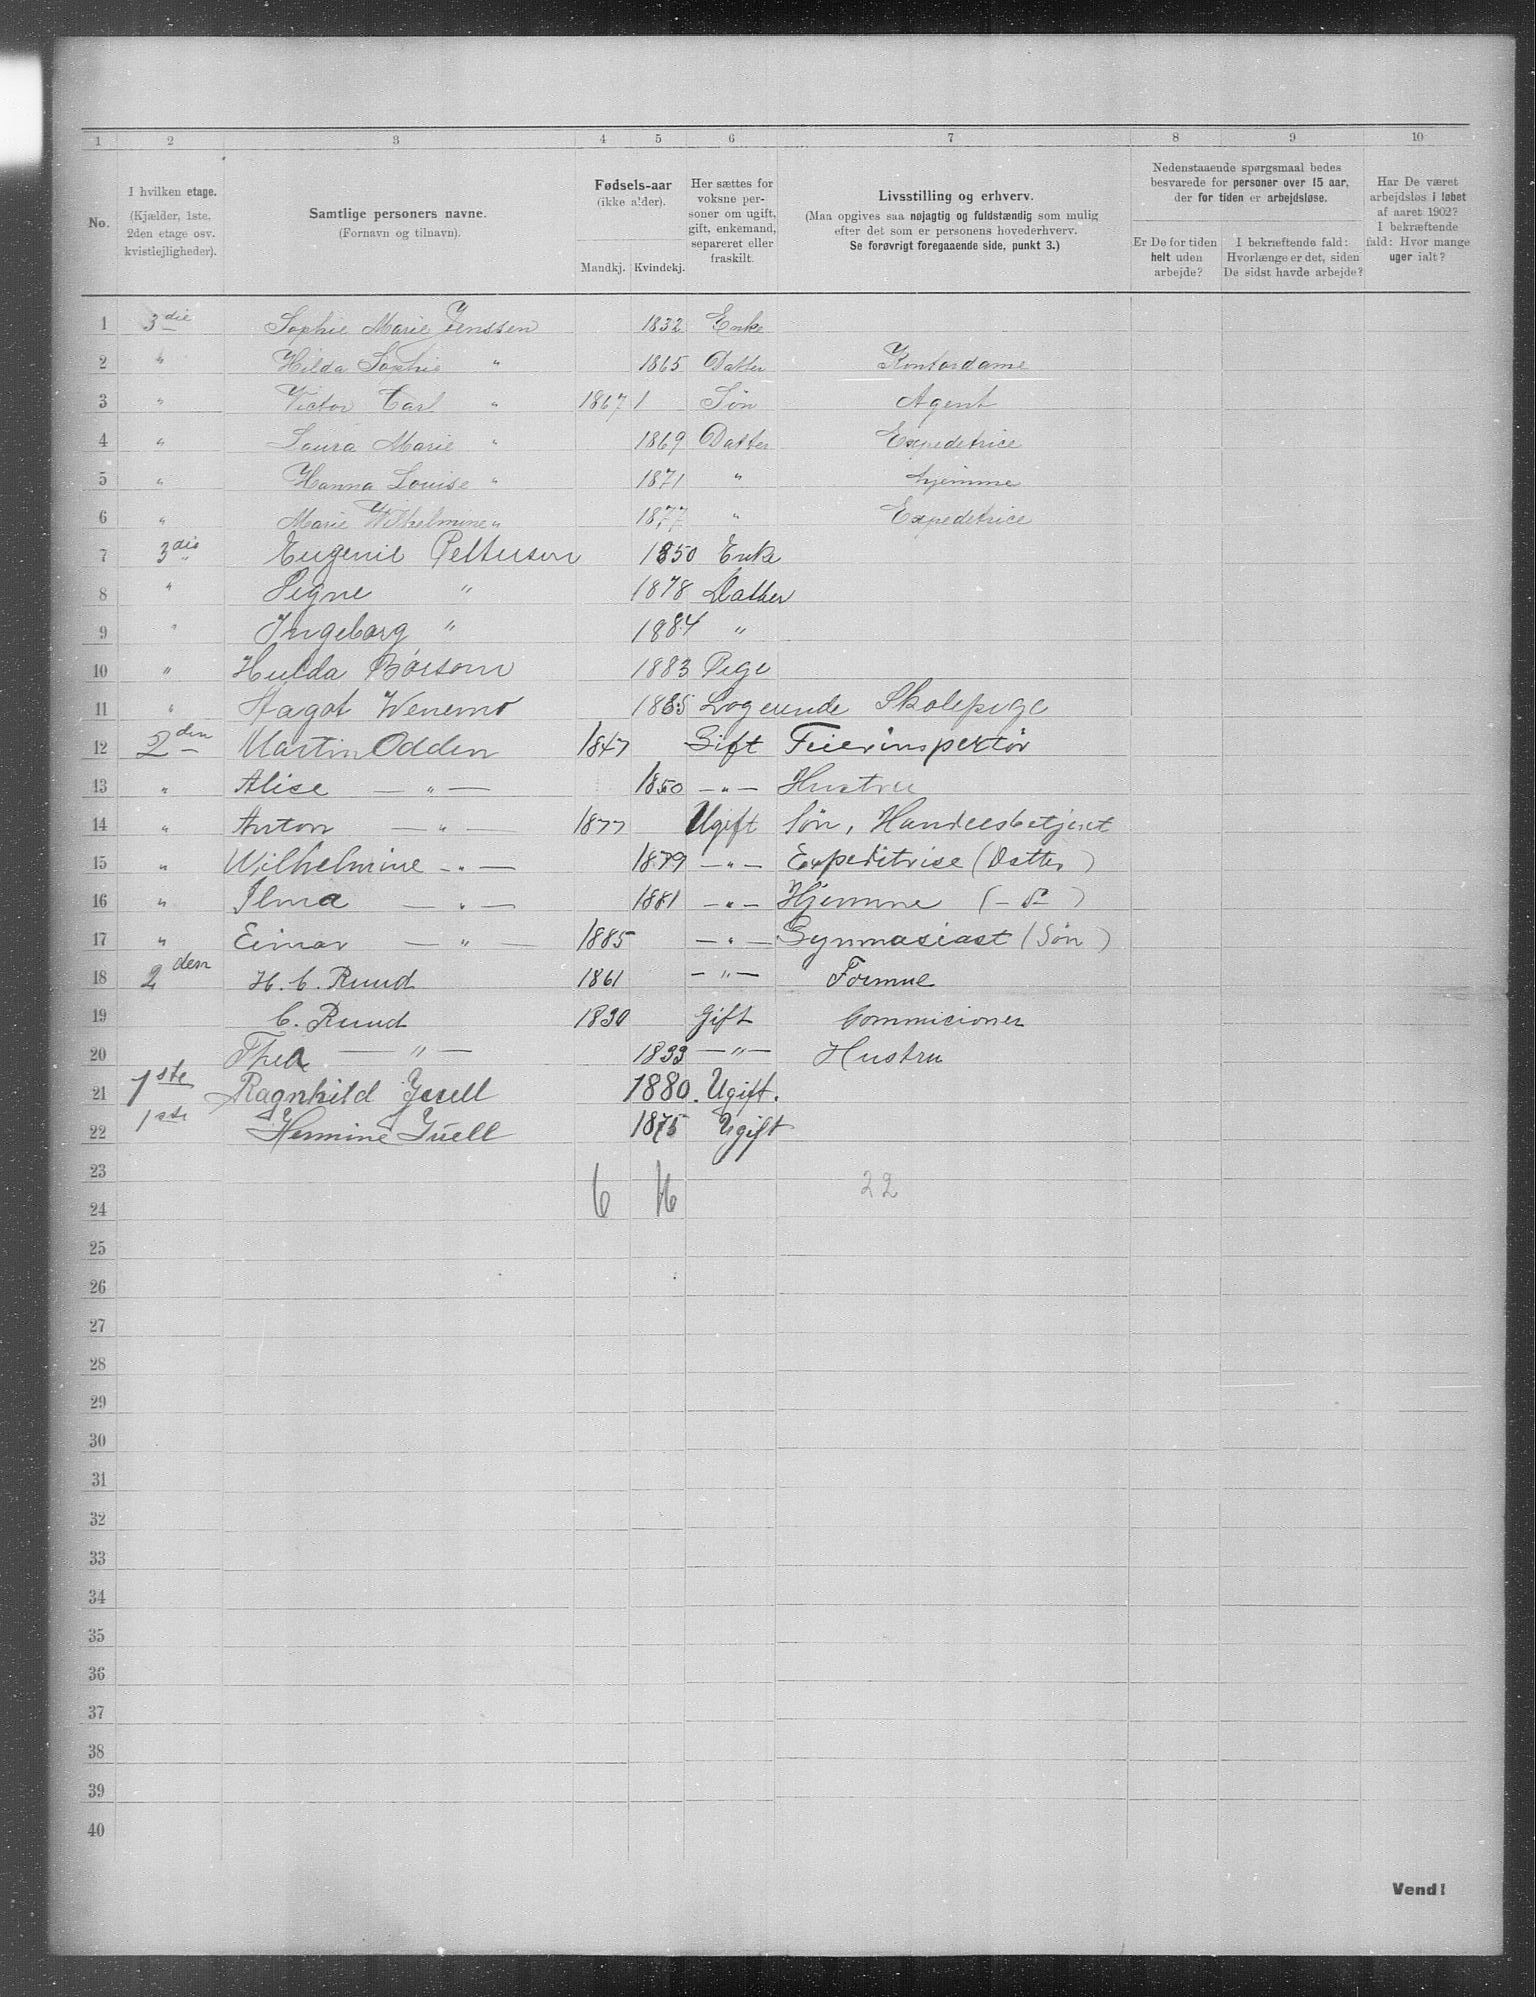 1 2 3 4 5 6 7 8 9 10
No.
I hvilken etage.
(Kjælder, 1ste,
2den etage osv.
kvistlejligheder).
Samtlige personers navne.
(Fornavn og tilnavn).
Fødsels-aar
(ikke alder).
Mandkj. Kvindekj.
Her sættes for
voksne per-
soner om ugift,
gift, enkemand,
separeret eller
fraskilt.
Livsstilling og erhverv.
(Maa opgives saa nøjagtig og fuldstændig som mulig
efter det som er personens hovederhverv.
Se forøvrigt foregaaende side, punkt 3.)
Nedenstaaende spørgsmaal bedes
besvarede for personer over 15 aar,
der for tiden er arbejdsløse.
Er De for tiden
helt uden
arbejde?
I bekræftende fald:
Hvorlænge er det, siden
De sidst havde arbejde?
Har De været
arbejdsløs i løbet
af aaret 1902?
I bekræftende
fald: Hvor mange
uger ialt?
1 3die Sophie Marie Jenssen 1832 Enke
2 " Hilda Sophie " 1865 Datter Kontordame
3 " Victor Carl " 1867 1 Søn Agent
4 " Laura Marie " 1869 Datter Expeditrice
5 " Hanna Louise " 1871 " hjemme
6 " Marie Wilhelmine " 1877 " Expeditrice
7 3die Eugenie Pettersen 1850 Enke
8 " Signe " 1878 Datter
9 " Ingeborg " 1884 "
10 " Hulda Børsom 1883 Pige
11 " Hagot Wenemo 1885 Logerende Skolepige
12 2den Martin Odden 1847 Gift Feierinspektør
13 " Alise — " — 1850 — " — Hustru
14 " Anton — " — 1877 Ugift Søn, Handelsbetjent
15 " Wilhelmine — " — 1879 — " — Expeditrise (Datter)
16 " Ilma — " — 1881 — " — Hjemme (— d° )
17 " Einar — " — 1885 — " — Gymnasiast (Søn)
18 2den H. C. Ruud 1861 — " — Formue
19 C. Ruud 1830 Gift Commicioner
20 Thea — " — 1833 — " — Hustru
21 1ste Ragnhild Juell 1880. Ugift.
22 1ste Hermine Juell 1875 Ugift
23
6 16 22
24
25
26
27
28
29
30
31
32
33
34
35
36
37
38
39
40
Vend!